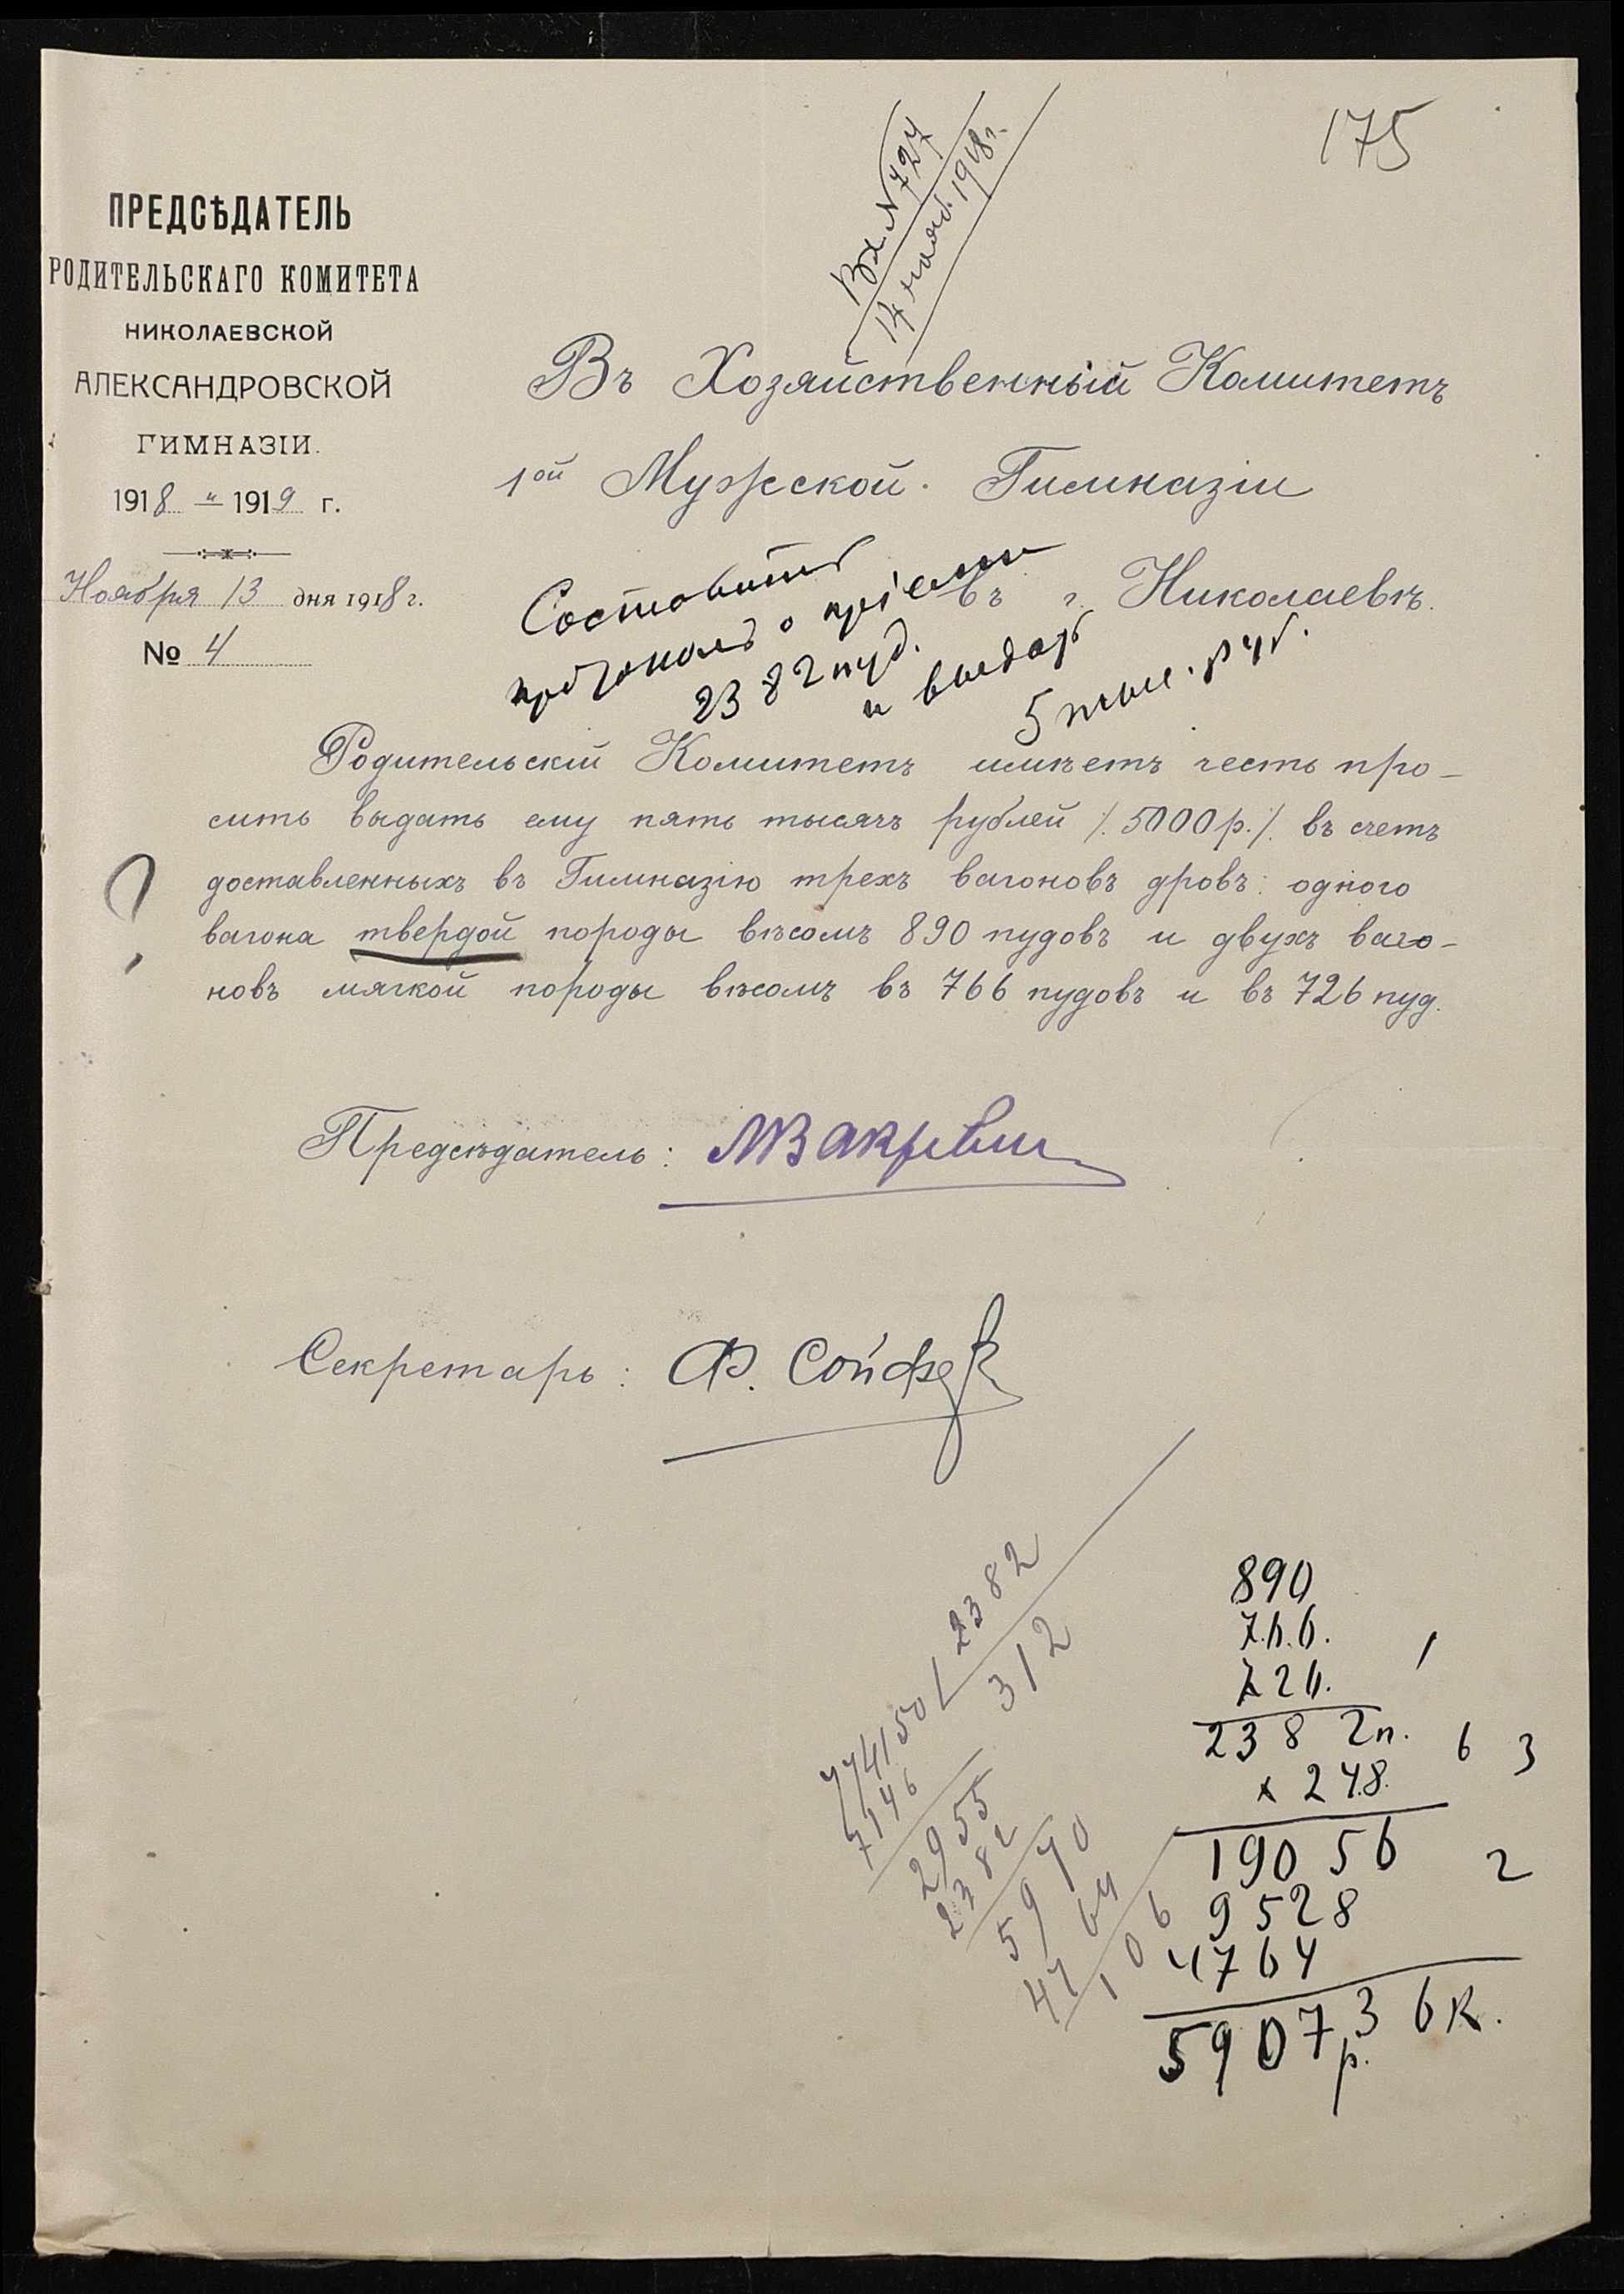 175
Вх. № 727
14 нояб. 1918 г.
ПРЕДСѢДАТЕЛЬ
РОДИТЕЛЬСКАГО КОМИТЕТА
НИКОЛАЕВСКОЙ
АЛЕКСАНДРОВСКОЙ
ГИМНАЗІИ.
1918 – 1919 г.
Ноября 13 дня 1918 г.
№ 4
Въ Хозяйственный Комитетъ
1ой Мужской Гимназіи
въ г. Николаевѣ.
Составить
протоколъ о пріемѣ
2382 пуд.
и выдать
5 тыс. руб.
Родительскій Комитетъ имѣетъ честь про-
сить выдать ему пять тысячъ рублей /. 5000 р. /. въ счетъ
доставленныхъ въ Гимназію трехъ вагоновъ дровъ: одного
?
вагона твердой породы вѣсомъ 890 пудовъ и двухъ ваго-
новъ мягкой породы вѣсомъ въ 766 пудовъ и въ 726 пуд.
Предсѣдатель:
Секретарь: Ф.
774150 / 2382
312
7146
2955
2382
5740
4764
106
890
766.
726.
2382 п.
x 248.
19056
9528
4764
5907 р. 36 к.
1
6 3
2